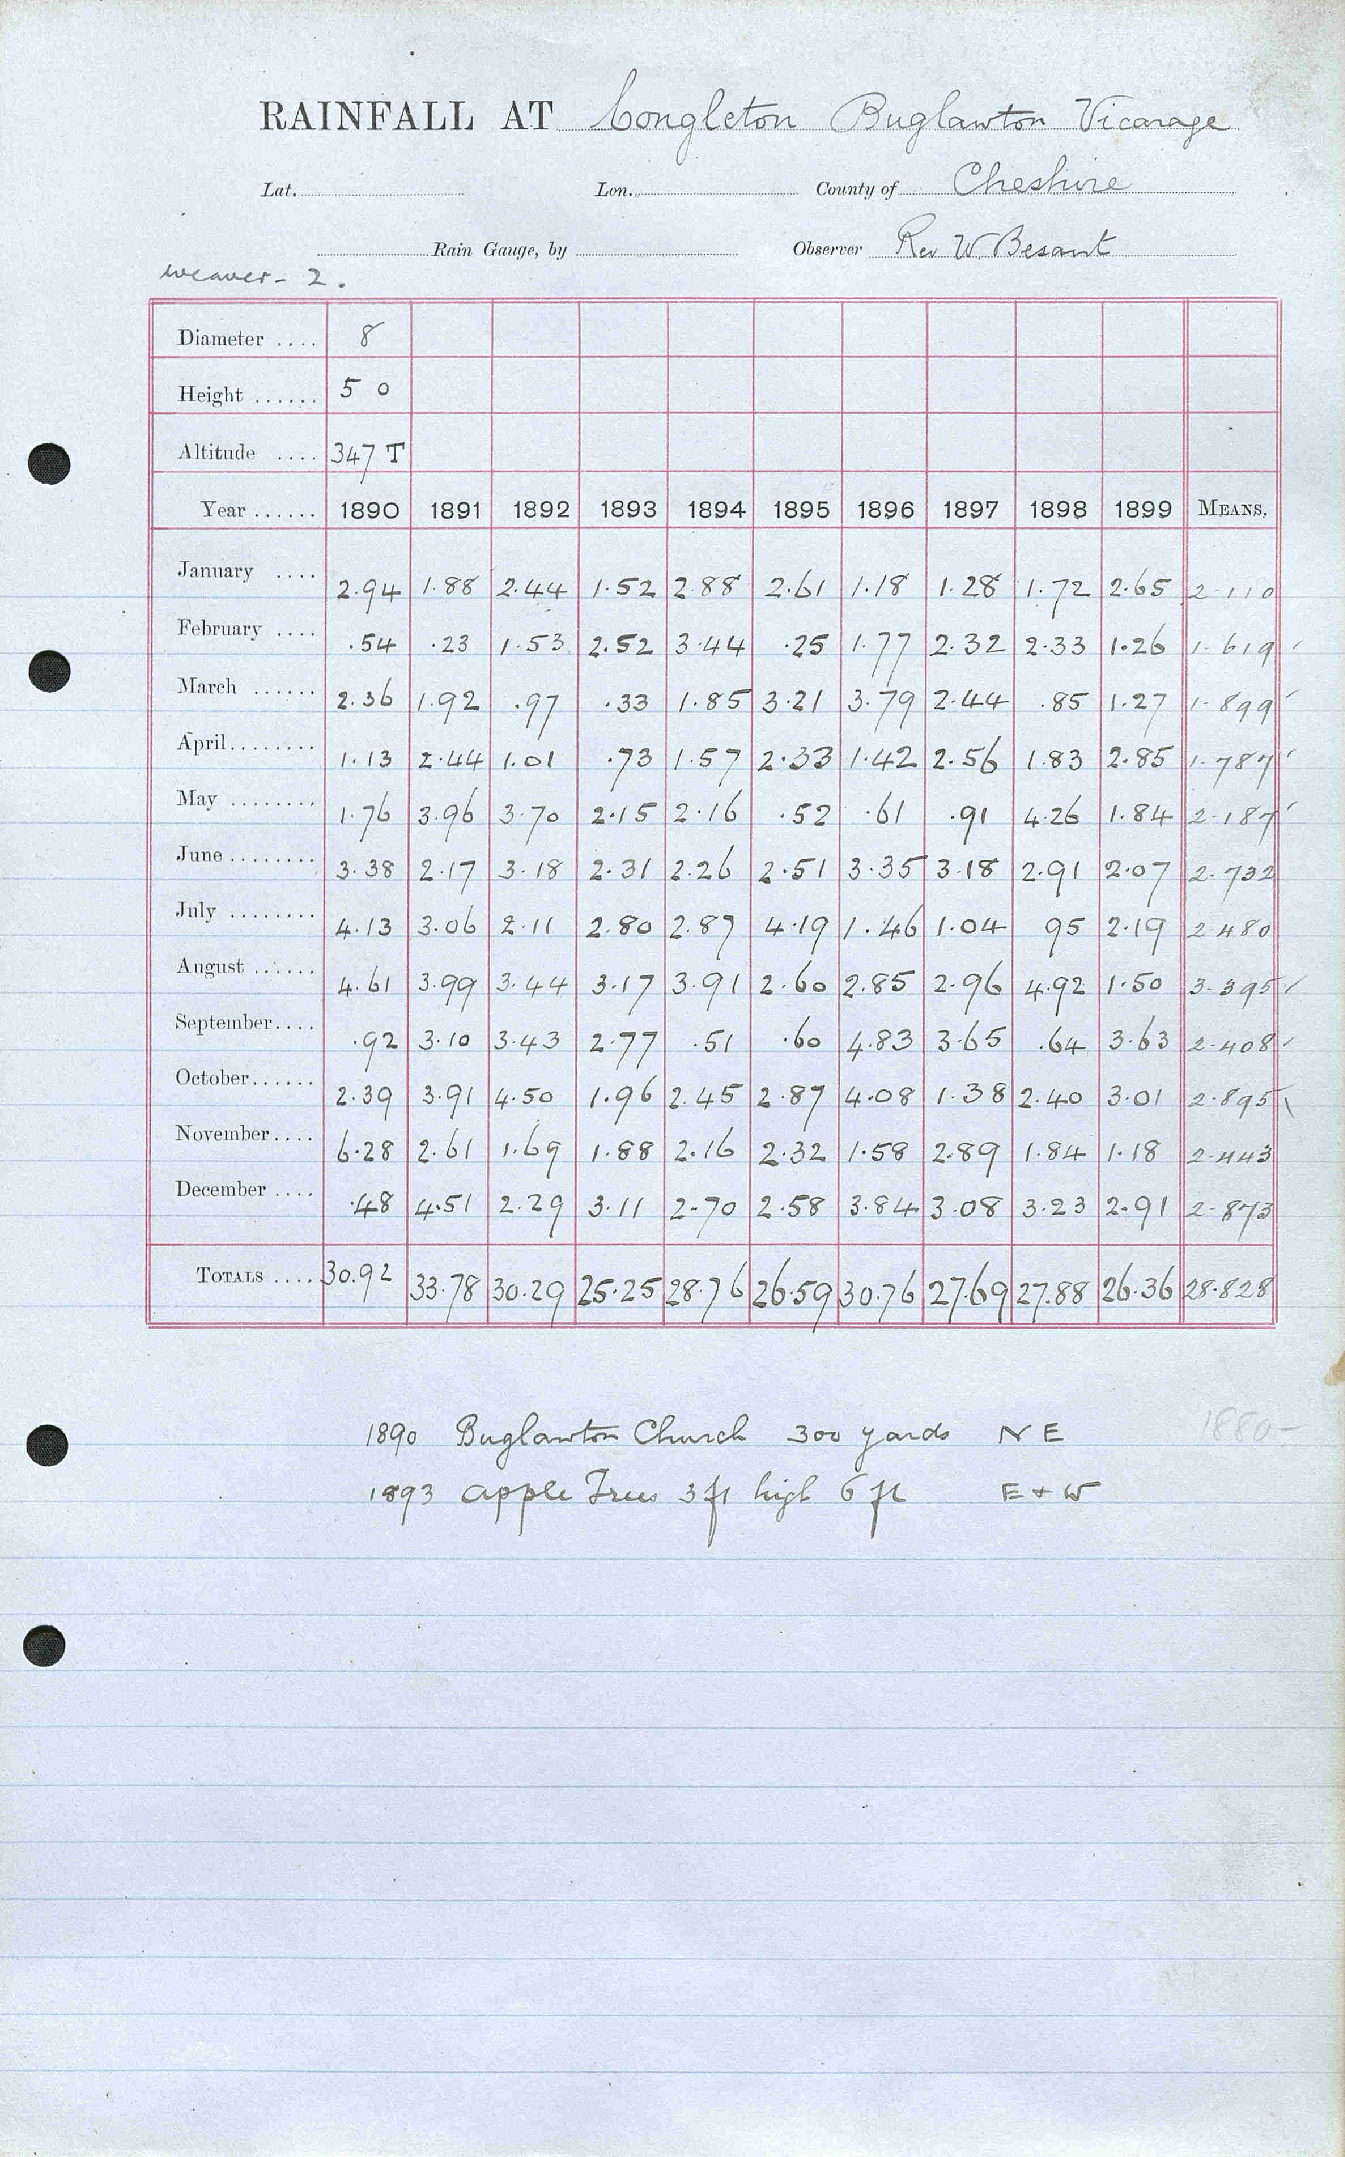 RAINFALL AT Congleton Buglawton Vicarage
Lat. Lon. County of Cheshire
Rain Gauge, by Observer Rev W Besant
Weaver - 2.
Diameter .... 8
Height ...... 5 0
Altitude .... 347 T
Year ...... 1890 1891 1892 1893 1894 1895 1896 1897 1898 1899 MEANS.
January .... 2.94 1.88 2.44 1.52 2.88 2.61 1.18 1.28 1.72 2.65 2.110
February .... .54 .23 1.53 2.52 3.44 .25 1.77 2.32 2.33 1.26 1.619
March ...... 2.36 1.92 .97 .33 1.85 3.21 3.79 2.44 .85 1.27 1.899
April........ 1.13 2.44 1.01 .73 1.57 2.33 1.42 2.56 1.83 2.85 1.787
May ........ 1.76 3.96 3.70 2.15 2.16 .52 .61 .91 4.26 1.84 2.187
June ........ 3.38 2.17 3.18 2.31 2.26 2.51 3.35 3.18 2.91 2.07 2.732
July ........ 4.13 3.06 2.11 2.80 2.87 4.19 1.46 1.04 95 2.19 2.480
August ...... 4.61 3.99 3.44 3.17 3.91 2.60 2.85 2.96 4.92 1.50 3.395
September.... .92 3.10 3.43 2.77 .51 .60 4.83 3.65 .64 3.63 2.408
October...... 2.39 3.91 4.50 1.96 2.45 2.87 4.08 1.38 2.40 3.01 2.895
November.... 6.28 2.61 1.69 1.88 2.16 2.32 1.58 2.89 1.84 1.18 2.443
December .... .48 4.51 2.29 3.11 2.70 2.58 3.84 3.08 3.23 2.91 2.873
TOTALS .... 30.92 33.78 30.29 25.25 28.76 26.59 30.76 27.69 27.88 26.36 28.828
1890 Buglawton Church 300 yards N E
1880-
1893 apple Trees 3 ft high 6 ft E + W